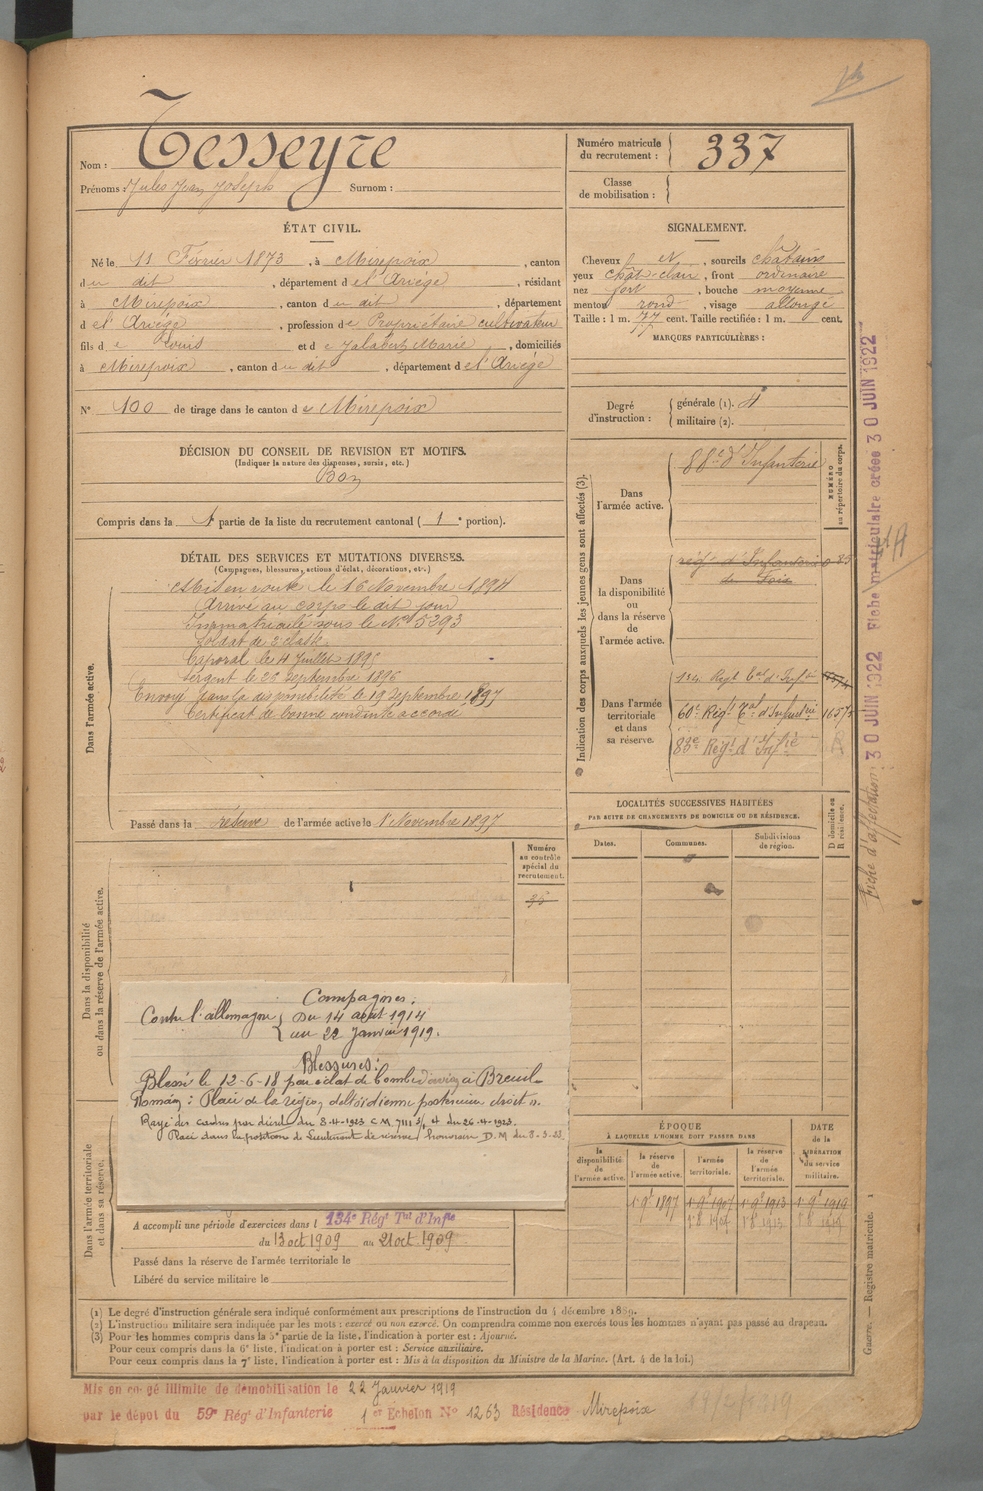 Nom : Tesseyre
Prénoms : Jules Jean Joseph Surnom :
Numéro matricule du recrutement : 337
Classe de mobilisation :
ÉTAT CIVIL.
Né le 11 Février 1873, à Mirepoix, canton
du dit, département de l'Ariège, résidant
à Mirepoix, canton du dit, département
d e l'Ariège, profession de Propriétaire cultivateur
fils de Louis et de Jalabert Marie, domiciliés
à Mirepoix, canton du dit, département de l'Ariège
N° 100 de tirage dans le canton de Mirepoix
SIGNALEMENT.
Cheveux N, sourcils châtains
yeux chât-clair, front ordinaire
nez fort, bouche moyenne
menton rond, visage allongé
Taille : 1 m. 77 cent. Taille rectifiée : 1 m. cent.
77
MARQUES PARTICULIÈRES :
Degré d'instruction : générale (1). 4
militaire (2).
DÉCISION DU CONSEIL DE REVISION ET MOTIFS.
(Indiquer la nature des dispenses, sursis, etc.)
Bon
Compris dans la partie de la liste du recrutement cantonal ( 1e portion).
DÉTAIL DES SERVICES ET MUTATIONS DIVERSES.
(Campagnes, blessures, actions d'éclat, décorations, etc.)
Dans l'armée active.
Mis en route le 16 Novembre 1894
Arrivé au corps le dit jour
Immatriculé sous le N° 5293
Soldat de 2e classe.
Caporal le 4 Juillet 1895
Sergent le 26 Septembre 1896
Envoyé dans la disponibilité le 19 Septembre 1897
Certificat de bonne conduite accordé
Passé dans la réserve de l'armée active le 1 Novembre 1897
Indication des corps auxquels les jeunes gens sont affectés (3).
NUMÉRO au répertoire du corps.
Dans l'armée active.
88e d'Infanterie
Dans la disponibilité ou dans la réserve de l'armée active.
régt d'Infanterie
de Foix
Dans l'armée territoriale et dans sa réserve.
134 Régt Tal d'Inft
60e Régt Tal d'Infanterie 1657
83e Régt d'Infie
LOCALITÉS SUCCESSIVES HABITÉES
PAR SUITE DE CHANGEMENTS DE DOMICILE OU DE RÉSIDENCE.
D domicile ou R résidence.
Dates. Communes. Subdivisions de région.
Numéro au contrôle spécial du recrutement.
Dans la disponibilité ou dans la réserve de l'armée active.
Campagnes :
Contre l'allemagne { Du 14 août 1914
au 22 Janvier 1919.
Blessures :
Blessé le 12-6-18 par éclat de bombe d'avion à Breuil-
Romain : Plaie de la région deltoïdienne postérieure droite.
Rayé des cadres par décret du 8-4-1923 C M 7111 3/4 du 26-4-1923.
Placé dans la position de Lieutenant de réserve honoraire D. M du 8-3-23
Dans l'armée territoriale et dans sa réserve.
A accompli une période d'exercices dans l 134e Régt Tal d'Infie
du 13 oct 1909 au 21 oct 1909
Passé dans la réserve de l'armée territoriale le
Libéré du service militaire le
ÉPOQUE
À LAQUELLE L'HOMME DOIT PASSER DANS
DATE de la LIBÉRATION du service militaire.
la disponibilité de l'armée active. la réserve de l'armée active. l'armée territoriale. la réserve de l'armée territoriale.
1er 9bre 1897 1er 9bre 1907 1er 9bre 1913 1er 9bre 1919
(1) Le degré d'instruction générale sera indiqué conformément aux prescriptions de l'instruction du 4 décembre 1889.
(2) L'instruction militaire sera indiquée par les mots : exercé ou non exercé. On comprendra comme non exercés tous les hommes n'ayant pas passé au drapeau.
(3) Pour les hommes compris dans la 5e partie de la liste, l'indication à porter est : Ajourné.
Pour ceux compris dans la 6e liste, l'indication à porter est : Service auxiliaire.
Pour ceux compris dans la 7e liste, l'indication à porter est : Mis à la disposition du Ministre de la Marine. (Art. 4 de la loi.)
Mis en congé illimité de démobilisation le 22 Janvier 1919
par le dépot du 59e Régt d'Infanterie 1er Echelon N° 1263 Résidence Mirepoix
Fiche d'affectation 30 JUIN 1922 Fiche matriculaire créée 30 JUIN 1922
Guerre. — Registre matricule. 1